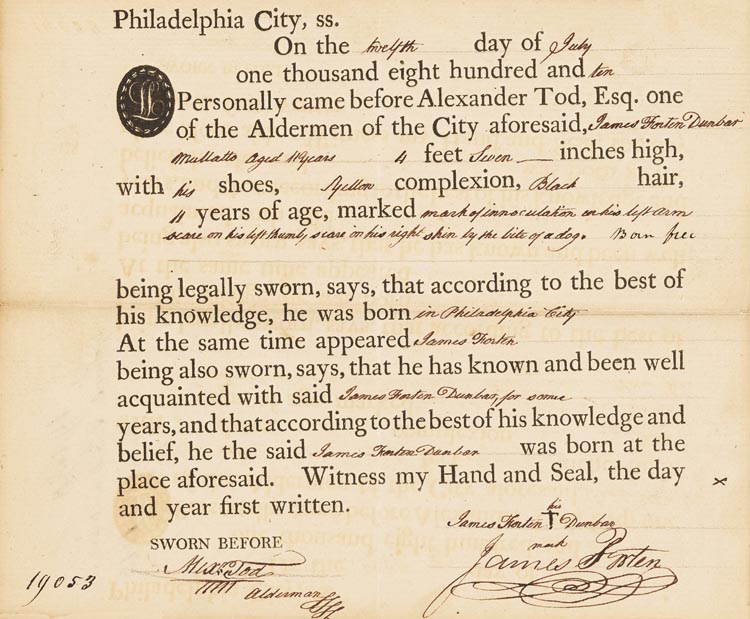 Philadelphia City, ss.
On the twelfth day of July
one thousand eight hundred and ten
L
Personally came before Alexander Tod, Esq. one
of the Aldermen of the City aforesaid, James Forten Dunbar
Mullatto aged 11 years 4 feet Seven inches high,
with his shoes, Yellow complexion, Black hair,
11 years of age, marked mark of innoculation on his left arm
scare on his left thumb, scare on his right shin by the bite of a dog. Born free
being legally sworn, says, that according to the best of
his knowledge, he was born in Philadelphia City
At the same time appeared James Forten
being also sworn, says, that he has known and been well
acquainted with said James Forten Dunbar, for some
years, and that according to the best of his knowledge and
belief, he the said James Forten Dunbar was born at the
place aforesaid. Witness my Hand and Seal, the day x
and year first written.
his
James Forten † Dunbar
mark
SWORN BEFORE
James Forten
Alexr Tod
Alderman
19053